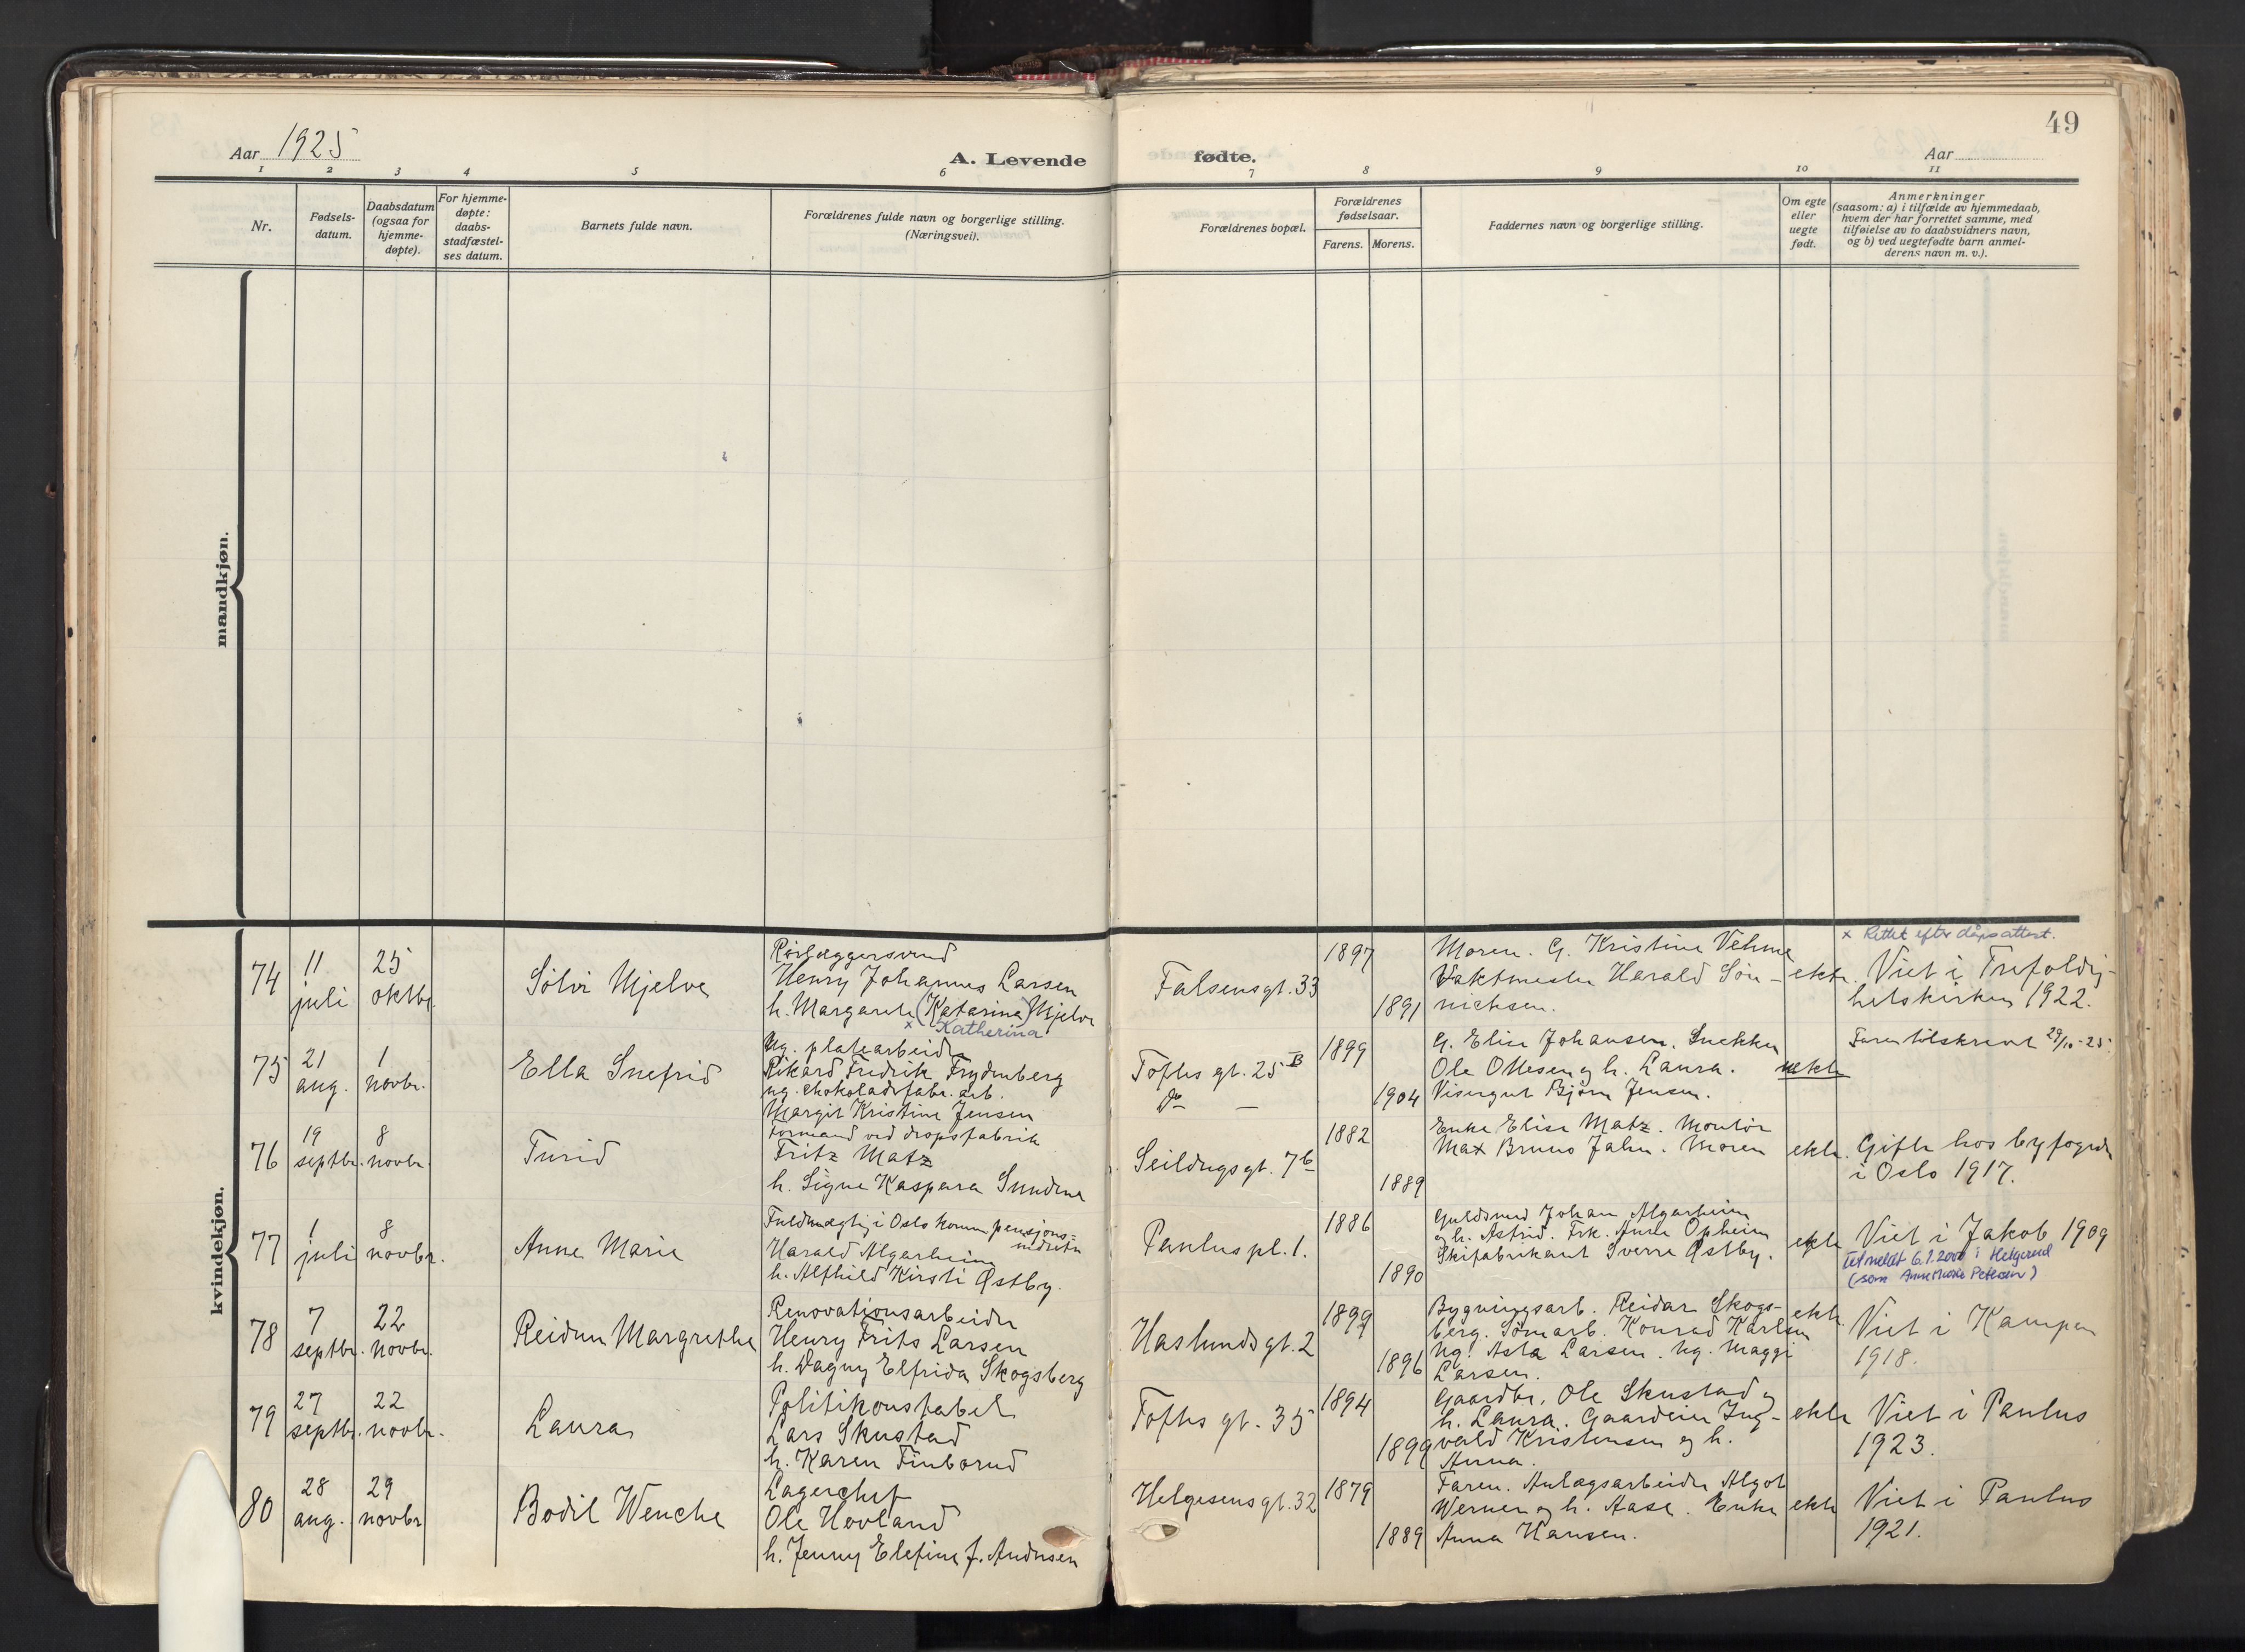 49
Aar 1925
A. Levende
fødte.
Aar
1 2 3 4 5 6 7 8 9 10 11
Nr.
Fødsels-
datum.
Daabsdatum
(ogsaa for
hjemme-
døpte).
For hjemme-
døpte:
daabs-
stadfæstel-
ses datum.
Barnets fulde navn.
Forældrenes fulde navn og borgerlige stilling.
(Næringsvei).
Forældrenes bopæl.
Forældrenes
fødselsaar.
Farens. Morens.
Faddernes navn og borgerlige stilling.
Om egte
eller
uegte
født.
Anmerkninger
(saasom: a) i tilfælde av hjemmedaab,
hvem der har forrettet samme, med
tilføielse av to daabsvidners navn,
og b) ved uegtefødte barn anmel-
derens navn m. v.).
mandkjøn.
kvindekjøn.
74
11
juli
25
oktbr.
Sølvi Mjelve
Rørlæggersvend
Henry Johannes Larsen
h. Margarete (Katarina) Mjelve
x Katherina
Falsensgt. 33
1897
1891
Moren. G. Kristine Vehme
Vaktmester Harald Søn-
nichsen.
ekte.
x Rettet efter dåpsattest.
Viet i Trefoldig-
hetskirken 1922.
75
21
aug.
1
novbr.
Ella Snefrid
Ug. platearbeider
Rikard Fredrik Frydenberg
ug. chokoladefabr. arb.
Margit Kristine Jensen
Toftes gt. 25 B
Do —
1899
1904
G. Elise Johansen. Snekker
Ole Ottesen og h. Laura.
Visergut Bjørn Jensen.
uekte
Faren tilskrevet 29/10-25.
76
19
septbr.
8
novbr.
Turid
Formand ved dropsfabrik
Fritz Matz
h. Signe Kaspara Sundene
Seildugsgt. 7b
1882
1889
Enke Elise Matz. Montør
Max Bruno Jahn. Moren
ekte.
Gifte hos byfogden
i Oslo 1917.
77
1
juli
8
novbr.
Anne Marie
Fuldmægtig i Oslo komm. pensjons-
indretn
Harald Algarheim
h. Alfhild Kirsti Østby.
Paulus pl. 1.
1886
1890
Guldsmed Johan Algarheim
og h. Astrid. Frk. Anne Opheim
Skifabrikant Sverre Østby.
ekte
Viet i Jakob 1909
Utmeldt 6.1.2000 i Helgerud
(som Anne Marie Petersen)
78
7
septbr.
22
novbr.
Reidun Margrethe
Renovationsarbeider
Henry Frits Larsen
h. Dagny Elfrida Skogsberg
Haslunds gt. 2
1899
1896
Bygningsarb. Reidar Skogs-
berg. Sømarb. Konrad Karlsen
Ug. Asta Larsen. Ug. Maggi
Larsen.
ekte.
Viet i Kampen
1918.
79
27
septbr.
22
novbr.
Laura
Politikonstabel
Lars Skustad
h. Karen Finborud
Toftes gt. 35
1894
1899
Gaardbr. Ole Skustad og
h. Laura. Gaardeier Ing-
vald Kristensen og h.
Anna.
ekte
Viet i Paulus
1923.
80
28
aug.
29
novbr
Bodil Wenche
Lagerchef
Ole Hovland
h. Jenny Elefine f. Andersen
Helgesens gt. 32
1879
1889
Faren. Anlægsarbeider Algot
Werner og h. Aase. Enke
Anna Hansen.
ekte
Viet i Paulus
1921.